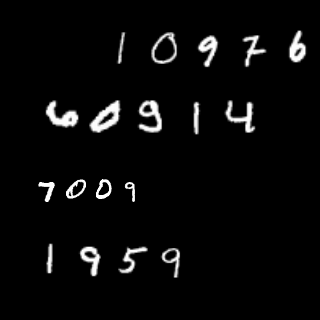 10976
60914
7009
1959